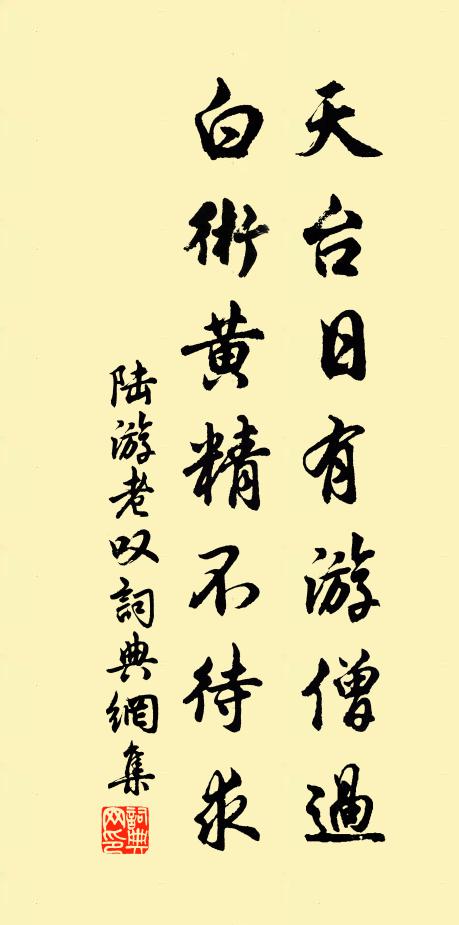 天台日有游僧過
白術黄精不待求
陆游老叹詞典網集
詞典網印